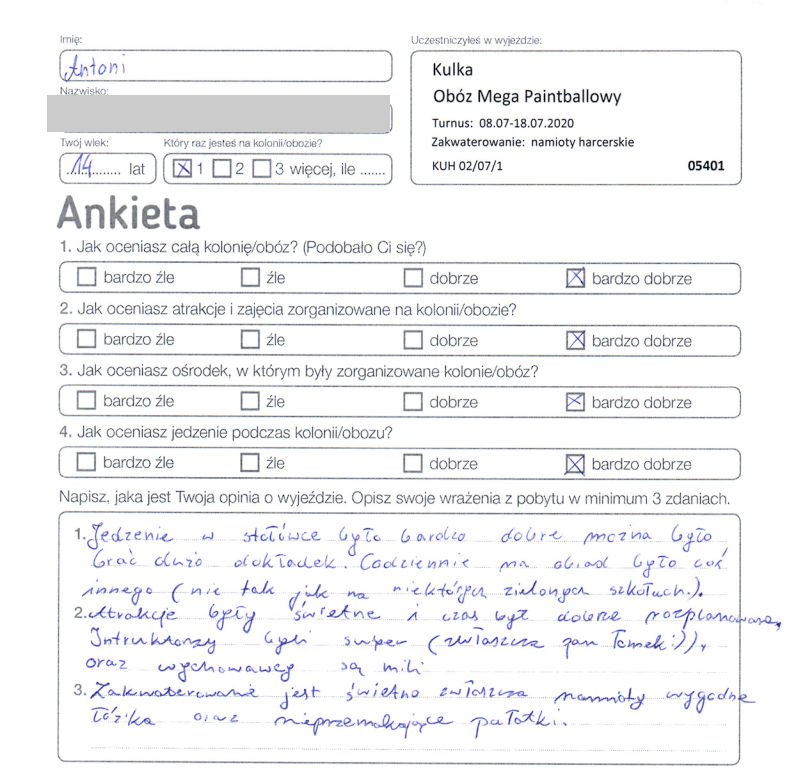 Imię:
Antoni
Nazwisko:
Twój wiek:
14 lat
Który raz jesteś na kolonii/obozie?
1 2 3 więcej, ile .......
Uczestniczyłeś w wyjeździe:
Kulka
Obóz Mega Paintballowy
Turnus: 08.07-18.07.2020
Zakwaterowanie: namioty harcerskie
KUH 02/07/1 05401
Ankieta
1. Jak oceniasz całą kolonię/obóz? (Podobało Ci się?)
bardzo źle źle dobrze bardzo dobrze
2. Jak oceniasz atrakcje i zajęcia zorganizowane na kolonii/obozie?
bardzo źle źle dobrze bardzo dobrze
3. Jak oceniasz ośrodek, w którym były zorganizowane kolonie/obóz?
bardzo źle źle dobrze bardzo dobrze
4. Jak oceniasz jedzenie podczas kolonii/obozu?
bardzo źle źle dobrze bardzo dobrze
Napisz, jaka jest Twoja opinia o wyjeździe. Opisz swoje wrażenia z pobytu w minimum 3 zdaniach.
1. Jedzenie w stołówce było bardzo dobre można było
brać dużo dokładek. Codziennie na obiad było coś
innego (nie tak jak na niektórych zielonych szkołach.).
2. Atrakcje były świetne i czas był dobrze rozplanowany,
Intruktorzy byli super (zwłaszcza pan Tomek:)),
oraz wychowawcy są mili
3. Zakwaterowanie jest świetno zwłaszcza namioty wygodne
łóżka oraz nieprzemakające pałatki.